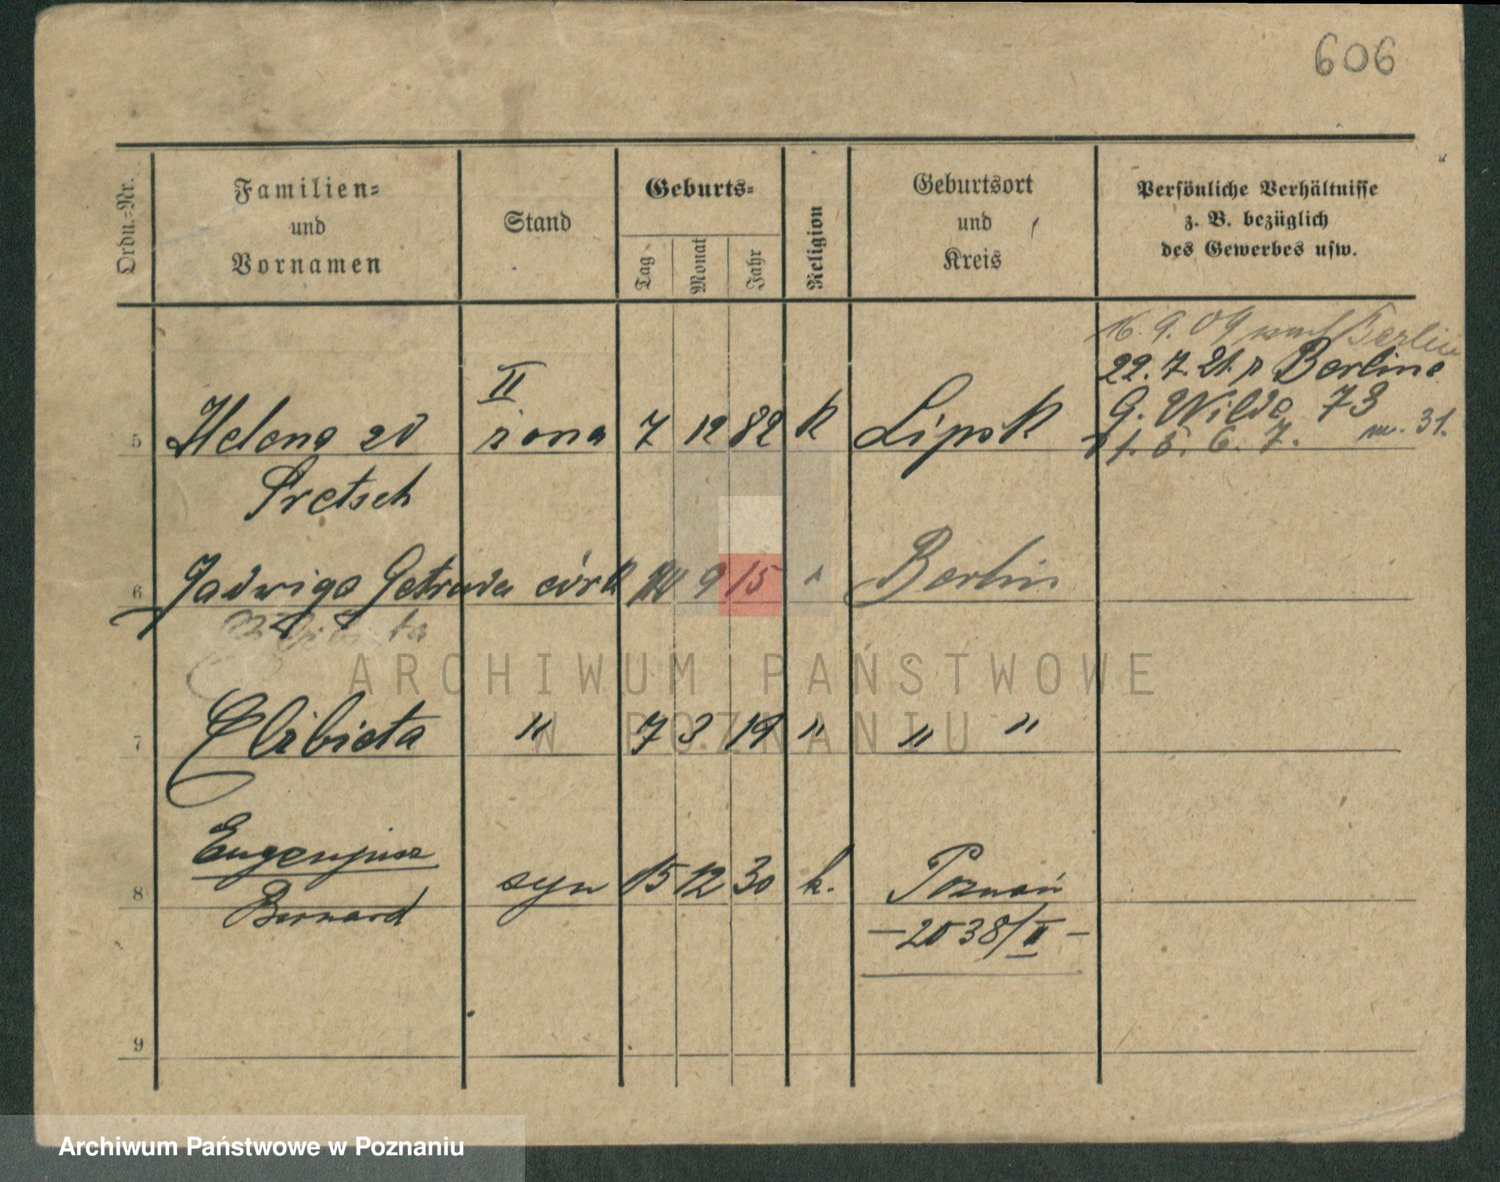 606
Ordn.-Nr.
Familien=
und
Vornamen
Stand
Geburts=
Tag
Monat
Jahr
Religion
Geburtsort
und
Kreis
Persönliche Verhältnisse
z. B. bezüglich
des Gewerbes usw.
16. 9. 09 nach Berlin
22. 7. 21. z Berlina
G. Wilda 73
m. 31.
11. 5. 6. 7.
II
5 Helena zd żona 7 12 82 k Lipsk
Pretsch
6 Jadwiga Getruda córk 14 9 15 " Berlin
Elżbieta
7 Elżbieta " 7 3 19 " " "
Eugenjusz
8 syn 15 12 30 k. Poznań
Bernard
– 2038/II –
9
ARCHIWUM PAŃSTWOWE
W POZNANIU
Archiwum Państwowe w Poznaniu